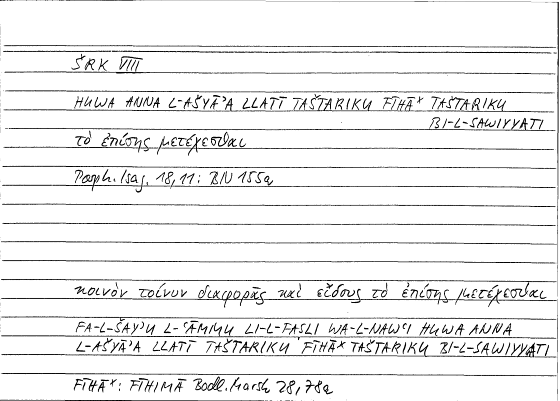 ŠRK VIII
HUWA ANNA L-AŠYĀʾA LLATĪ TAŠTARIKU FĪHĀˣ TAŠTARIKU
BI-L-SAWIYYATI
τὸ ἐπίσης μετέχεσθαι
Porph. Isag. 18,11: BN 155a
κοινὸν τοίνυν διαφορᾶς καὶ εἴδους τὸ ἐπίσης μετέχεσθαι
FA-L-ŠAYʾU L-ʿĀMMU LI-L-FASLI WA-L-NAWʿI HUWA ANNA
L-AŠYĀʾA LLATĪ TAŠTARIKU FĪHĀˣ TAŠTARIKU BI-L-SAWIYYATI
FĪHĀˣ: FĪHIMĀ Bodl. Marsh 28, 78a